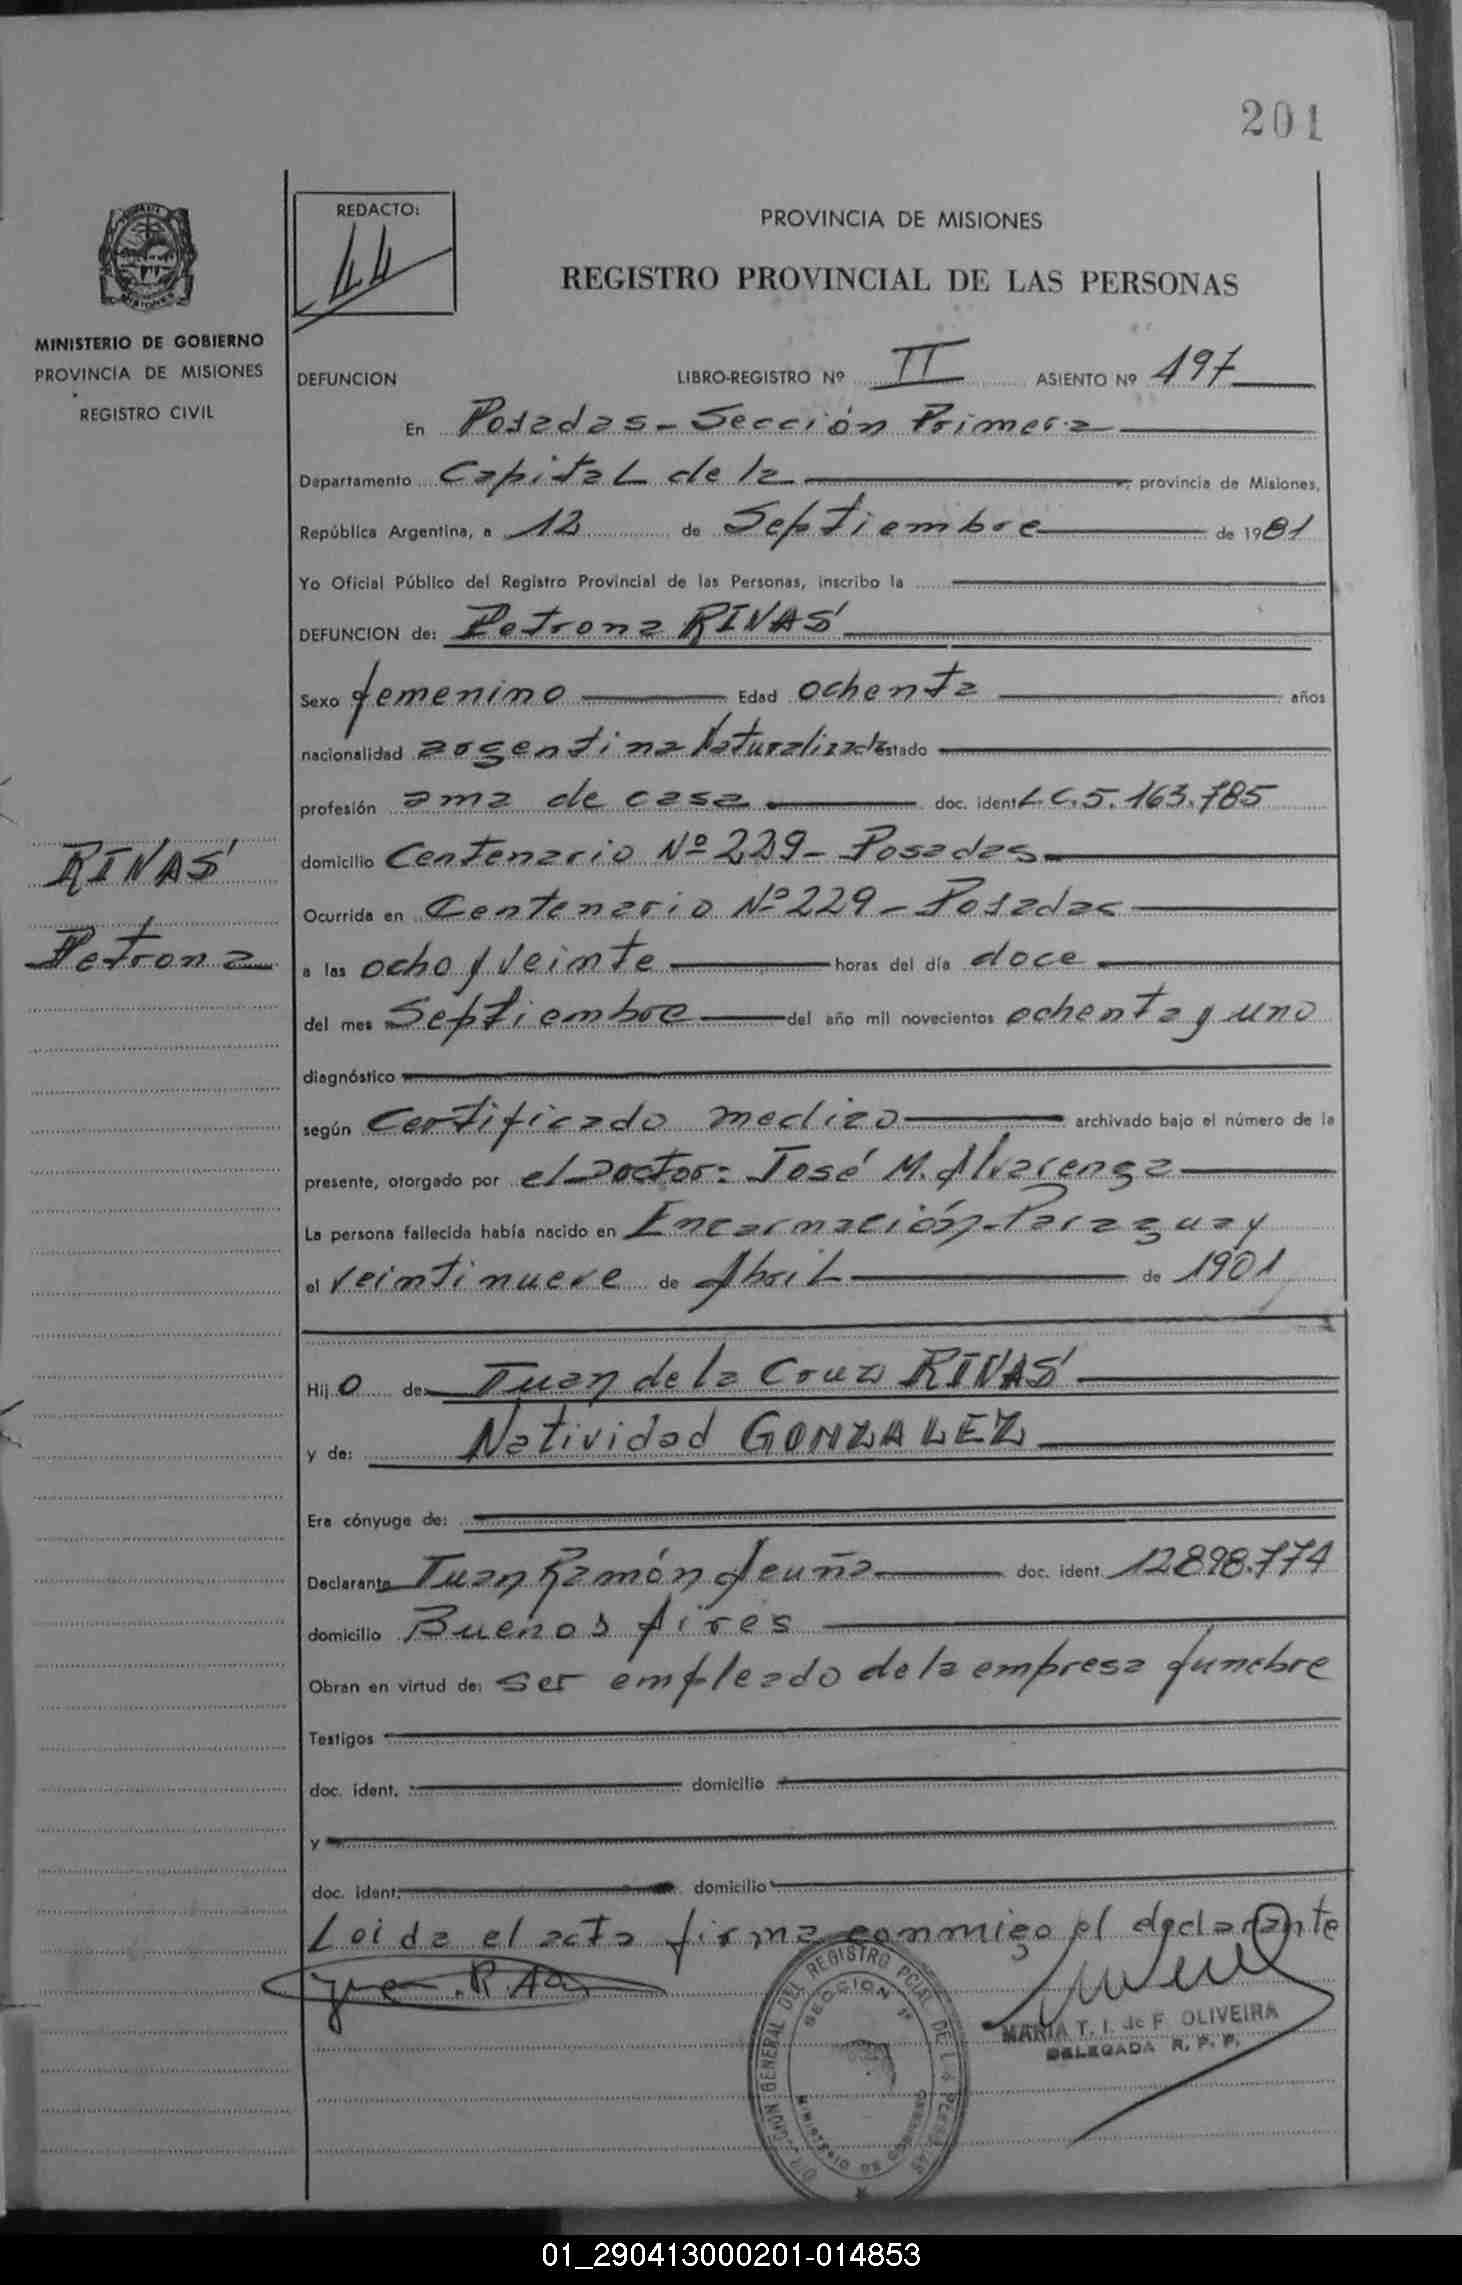 201
REDACTO:
PROVINCIA DE MISIONES
REGISTRO PROVINCIAL DE LAS PERSONAS
MISIONES
MINISTERIO DE GOBIERNO
PROVINCIA DE MISIONES
REGISTRO CIVIL
DEFUNCION LIBRO-REGISTRO Nº II ASIENTO Nº 197
En Posadas - Sección Primera
Departamento Capital de la provincia de Misiones,
República Argentina, a 12 de Septiembre de 1981
Yo Oficial Público del Registro Provincial de las Personas, inscribo la
DEFUNCION de: Petrona RIVAS
Sexo femenino Edad ochenta años
nacionalidad argentina Naturalizada estado
profesión ama de casa doc. ident. L.C. 5.163.785
RIVAS
Petrona
domicilio Centenario Nº 229 - Posadas
Ocurrida en Centenario Nº 229 - Posadas
a las ocho y veinte horas del día doce
del mes Septiembre del año mil novecientos ochenta y uno
diagnóstico
según Certificado medico archivado bajo el número de la
presente, otorgado por el Doctor: José M. Alvarenga
La persona fallecida había nacido en Encarnación - Paraguay
el veintinueve de Abril de 1901
Hij o de: Juan de la Cruz RIVAS
y de: Natividad GONZALEZ
Era cónyuge de:
Declarante Juan Ramón Acuña doc. ident. 12898.774
domicilio Buenos Aires
Obran en virtud de: ser empleado de la empresa funebre
Testigos
doc. ident. domicilio
y
doc. ident. domicilio
Leida el acta firma conmigo el declarante
DIRECCION GENERAL DEL REGISTRO PCIAL DE LAS PERSONAS
SECCION 1ª
MINISTERIO DE GOBIERNO
MARIA T. I. de F. OLIVEIRA
DELEGADA R. P. P.
01_290413000201-014853